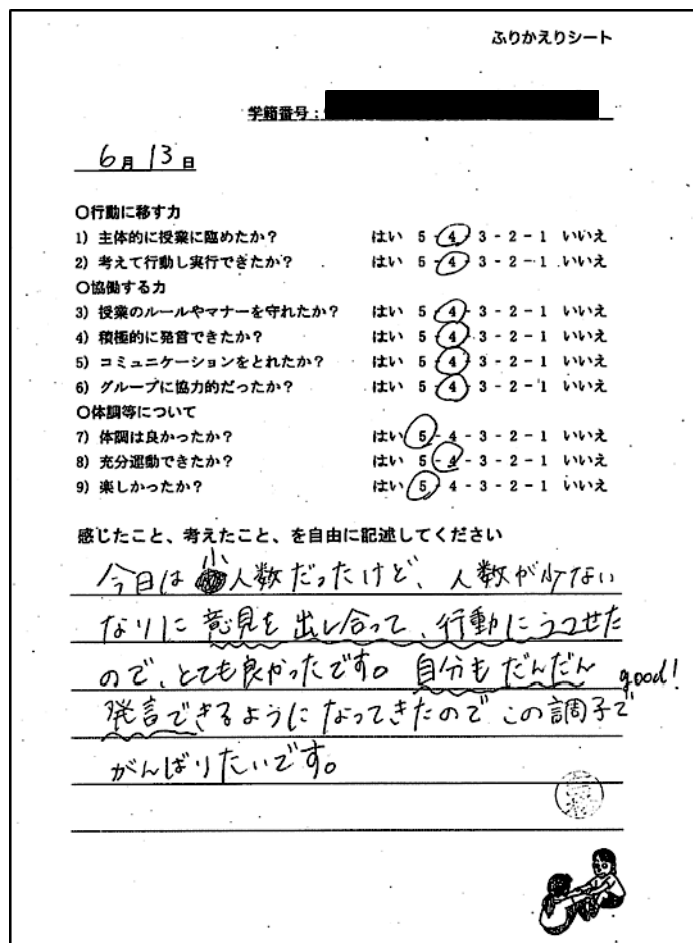 ふりかえりシート
学籍番号:
6月13日
〇行動に移す力
1) 主体的に授業に臨めたか? はい 5-4-3-2-1 いいえ
2) 考えて行動し実行できたか? はい 5-4-3-2-1 いいえ
〇協働する力
3) 授業のルールやマナーを守れたか? はい 5-4-3-2-1 いいえ
4) 積極的に発言できたか? はい 5-4-3-2-1 いいえ
5) コミュニケーションをとれたか? はい 5-4-3-2-1 いいえ
6) グループに協力的だったか? はい 5-4-3-2-1 いいえ
〇体調等について
7) 体調は良かったか? はい 5-4-3-2-1 いいえ
8) 充分運動できたか? はい 5-4-3-2-1 いいえ
9) 楽しかったか? はい 5-4-3-2-1 いいえ
感じたこと、考えたこと、を自由に記述してください
今日は小人数だったけど、人数が少ない
なりに意見を出し合って、行動にうつせた
ので、とても良かったです。自分もだんだん
good!
発言できるようになってきたのでこの調子で
がんばりたいです。